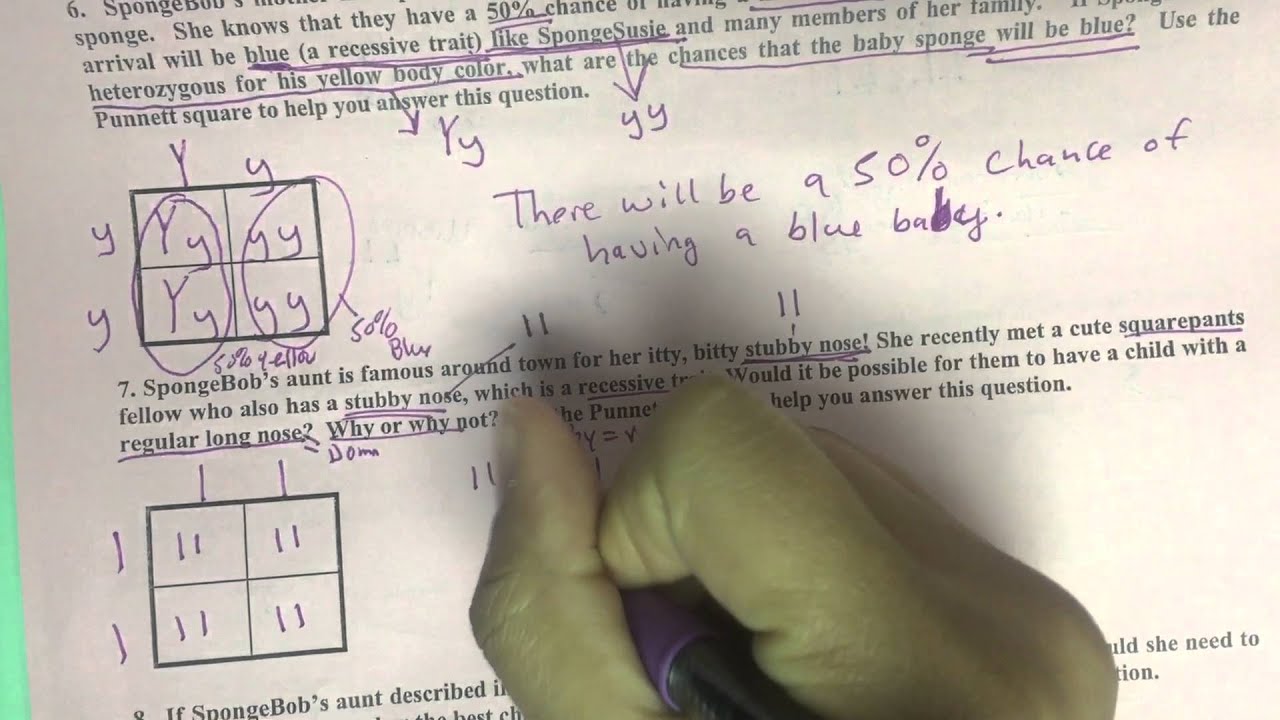 6. SpongeBob's mother
sponge. She knows that they have a 50% chance of having a
arrival will be blue (a recessive trait) like SpongeSusie and many members of her family. If
heterozygous for his yellow body color, what are the chances that the baby sponge will be blue? Use the
Punnett square to help you answer this question.
Yy
yy
Y y
y Yy yy
y Yy yy
50% yellow
50%
Blue
There will be a 50% chance of
having a blue baby.
ll
ll
7. SpongeBob's aunt is famous around town for her itty, bitty stubby nose! She recently met a cute squarepants
fellow who also has a stubby nose, which is a recessive Would it be possible for them to have a child with a
regular long nose? Why or why not? the help you answer this question.
Dom
l l
l ll ll
l ll ll
ll
she need to
8. If SpongeBob's aunt described
the best